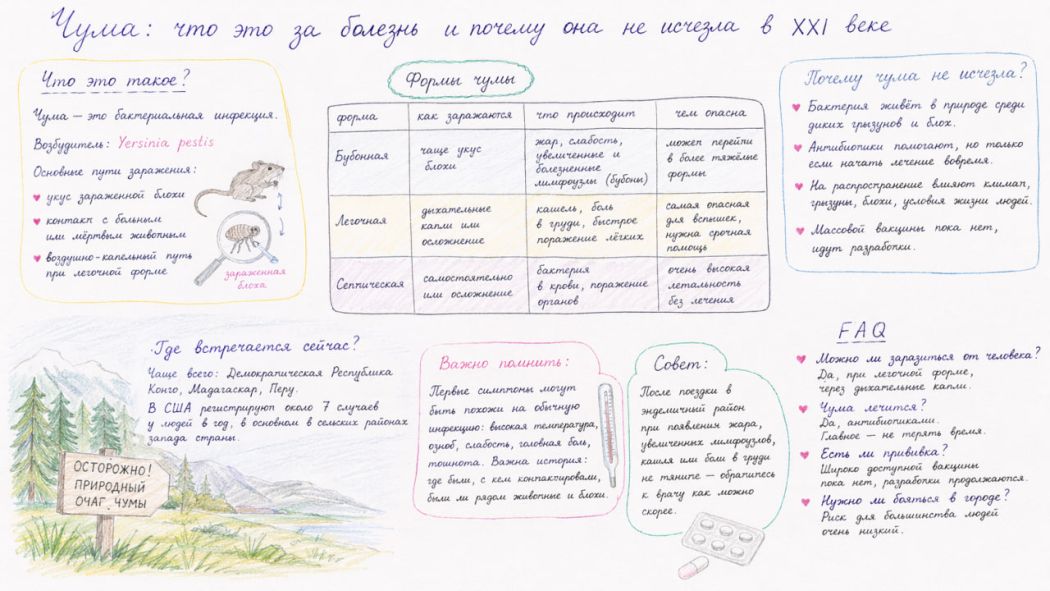 Чума: что это за болезнь и почему она не исчезла в XXI веке
Что это такое?
Чума — это бактериальная инфекция.
Возбудитель: Yersinia pestis
Основные пути заражения:
укус зараженной блохи
контакт с больным
или мёртвым животным
воздушно-капельный путь
при легочной форме
зараженная
блоха
Формы чумы
форма
как заражаются
что происходит
чем опасна
Бубонная
чаще укус
блохи
жар, слабость,
увеличенные и
болезненные
лимфоузлы (бубоны)
может перейти
в более тяжёлые
формы
Легочная
дыхательные
капли или
осложнение
кашель, боль
в груди, быстрое
поражение лёгких
самая опасная
для вспышек,
нужна срочная
помощь
Септическая
самостоятельно
или осложнение
бактерия
в крови, поражение
органов
очень высокая
летальность
без лечения
Почему чума не исчезла?
Бактерия живёт в природе среди
диких грызунов и блох.
Антибиотики помогают, но только
если начать лечение вовремя.
На распространение влияют климат,
грызуны, блохи, условия жизни людей.
Массовой вакцины пока нет,
идут разработки.
Где встречается сейчас?
Чаще всего: Демократическая Республика
Конго, Мадагаскар, Перу.
В США регистрируют около 7 случаев
у людей в год, в основном в сельских районах
запада страны.
ОСТОРОЖНО!
ПРИРОДНЫЙ
ОЧАГ ЧУМЫ
Важно помнить:
Первые симптомы могут
быть похожи на обычную
инфекцию: высокая температура,
озноб, слабость, головная боль,
тошнота. Важна история:
где были, с кем контактировали,
были ли рядом животные и блохи.
Совет:
После поездки в
эндемичный район
при появлении жара,
увеличенных лимфоузлов,
кашля или боли в груди
не тяните — обратитесь
к врачу как можно
скорее.
FAQ
Можно ли заразиться от человека?
Да, при легочной форме,
через дыхательные капли.
Чума лечится?
Да, антибиотиками.
Главное — не терять время.
Есть ли прививка?
Широко доступной вакцины
пока нет, разработки продолжаются.
Нужно ли бояться в городе?
Риск для большинства людей
очень низкий.